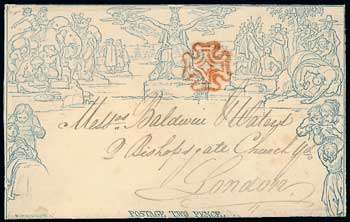 Messrs Baldwin & Waters
Bishopsgate Church Yd
London
POSTAGE TWO PENCE.